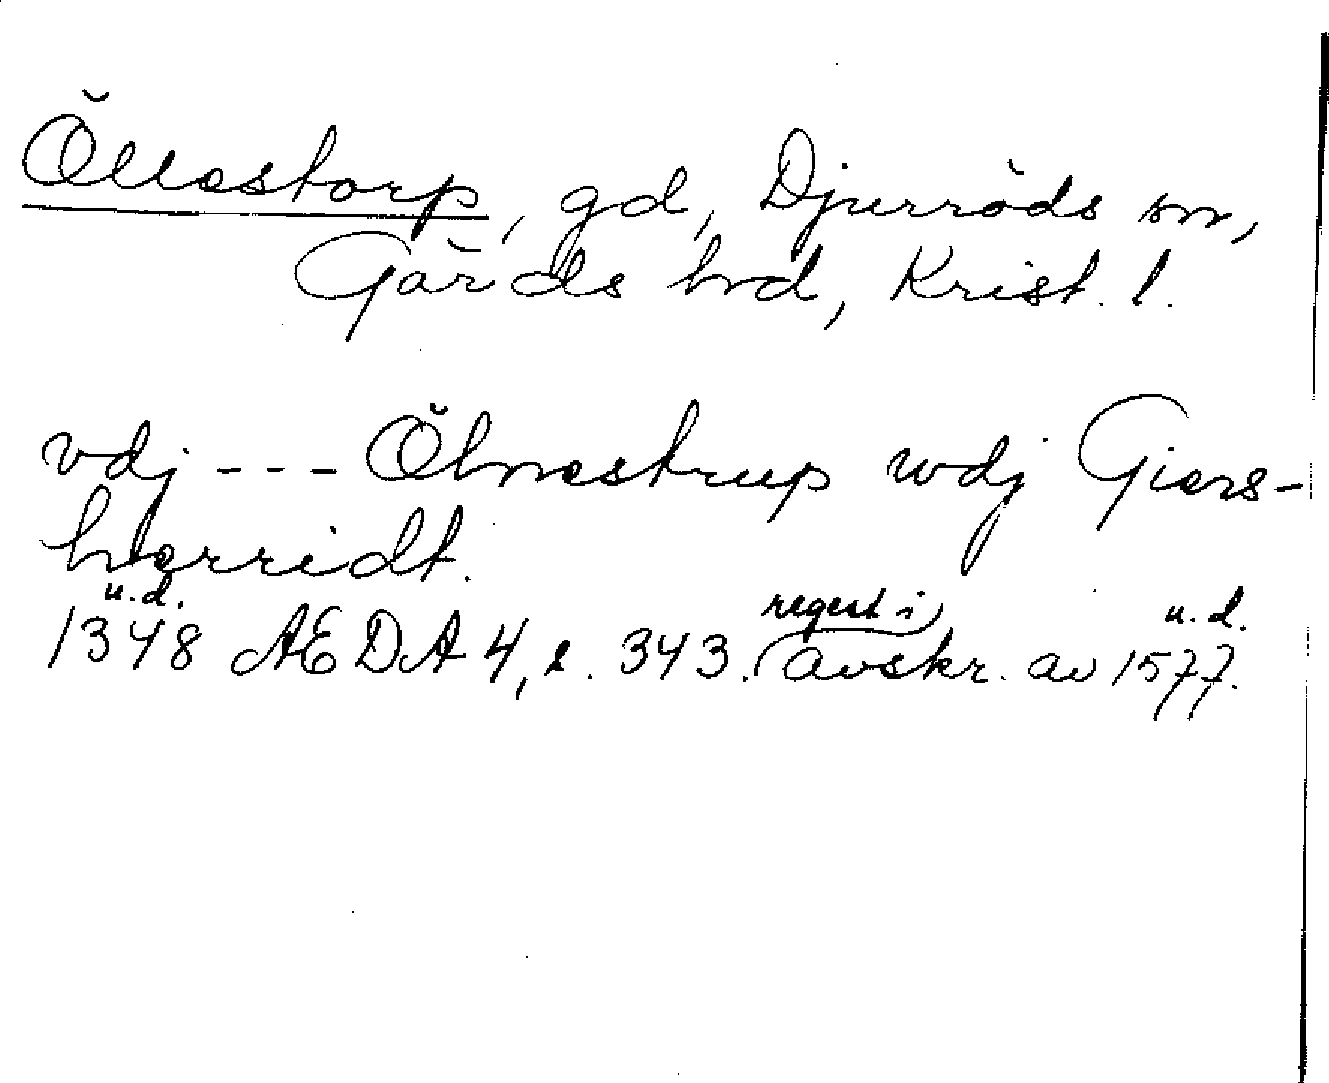 Öllestorp, gd, Djurröds sn,
Gärds hrd, Krist. l.
vdj --- Ölmestrup wdj Giers-
herridt.
u.d.
1348 AEDA 4, s. 343. regest i avskr. av 1577. u.d.